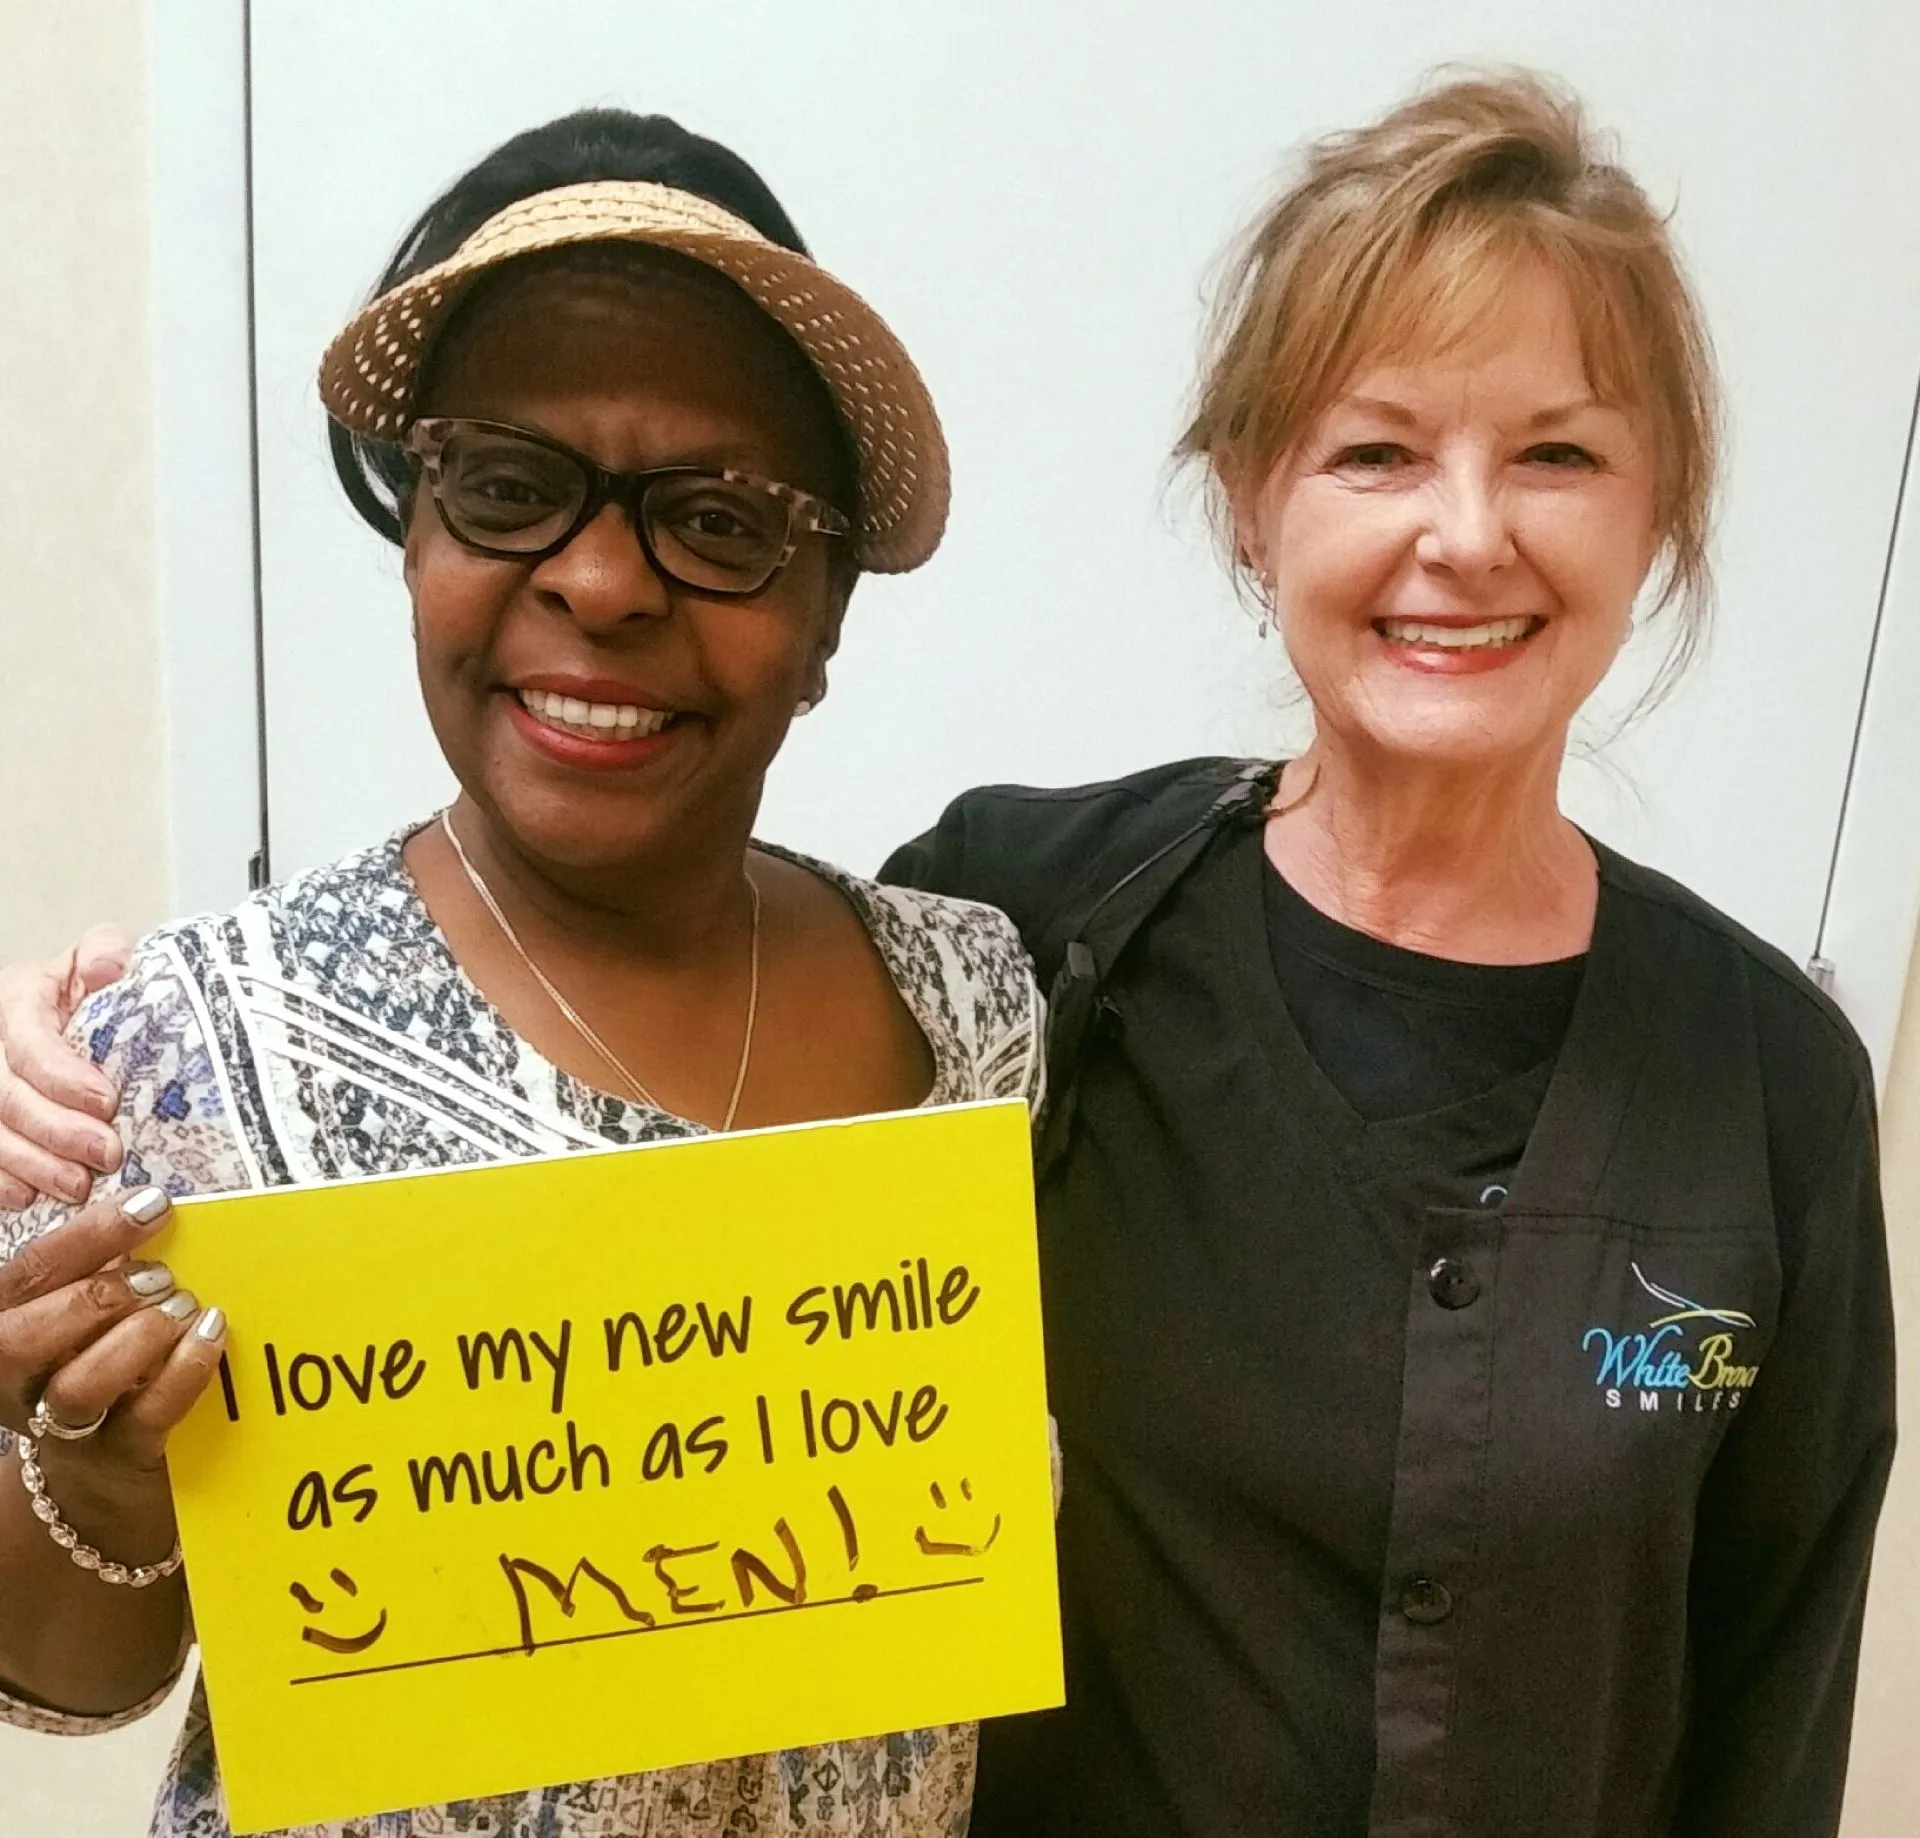 I love my new smile
as much as I love
MEN!
White Brow
SMILES